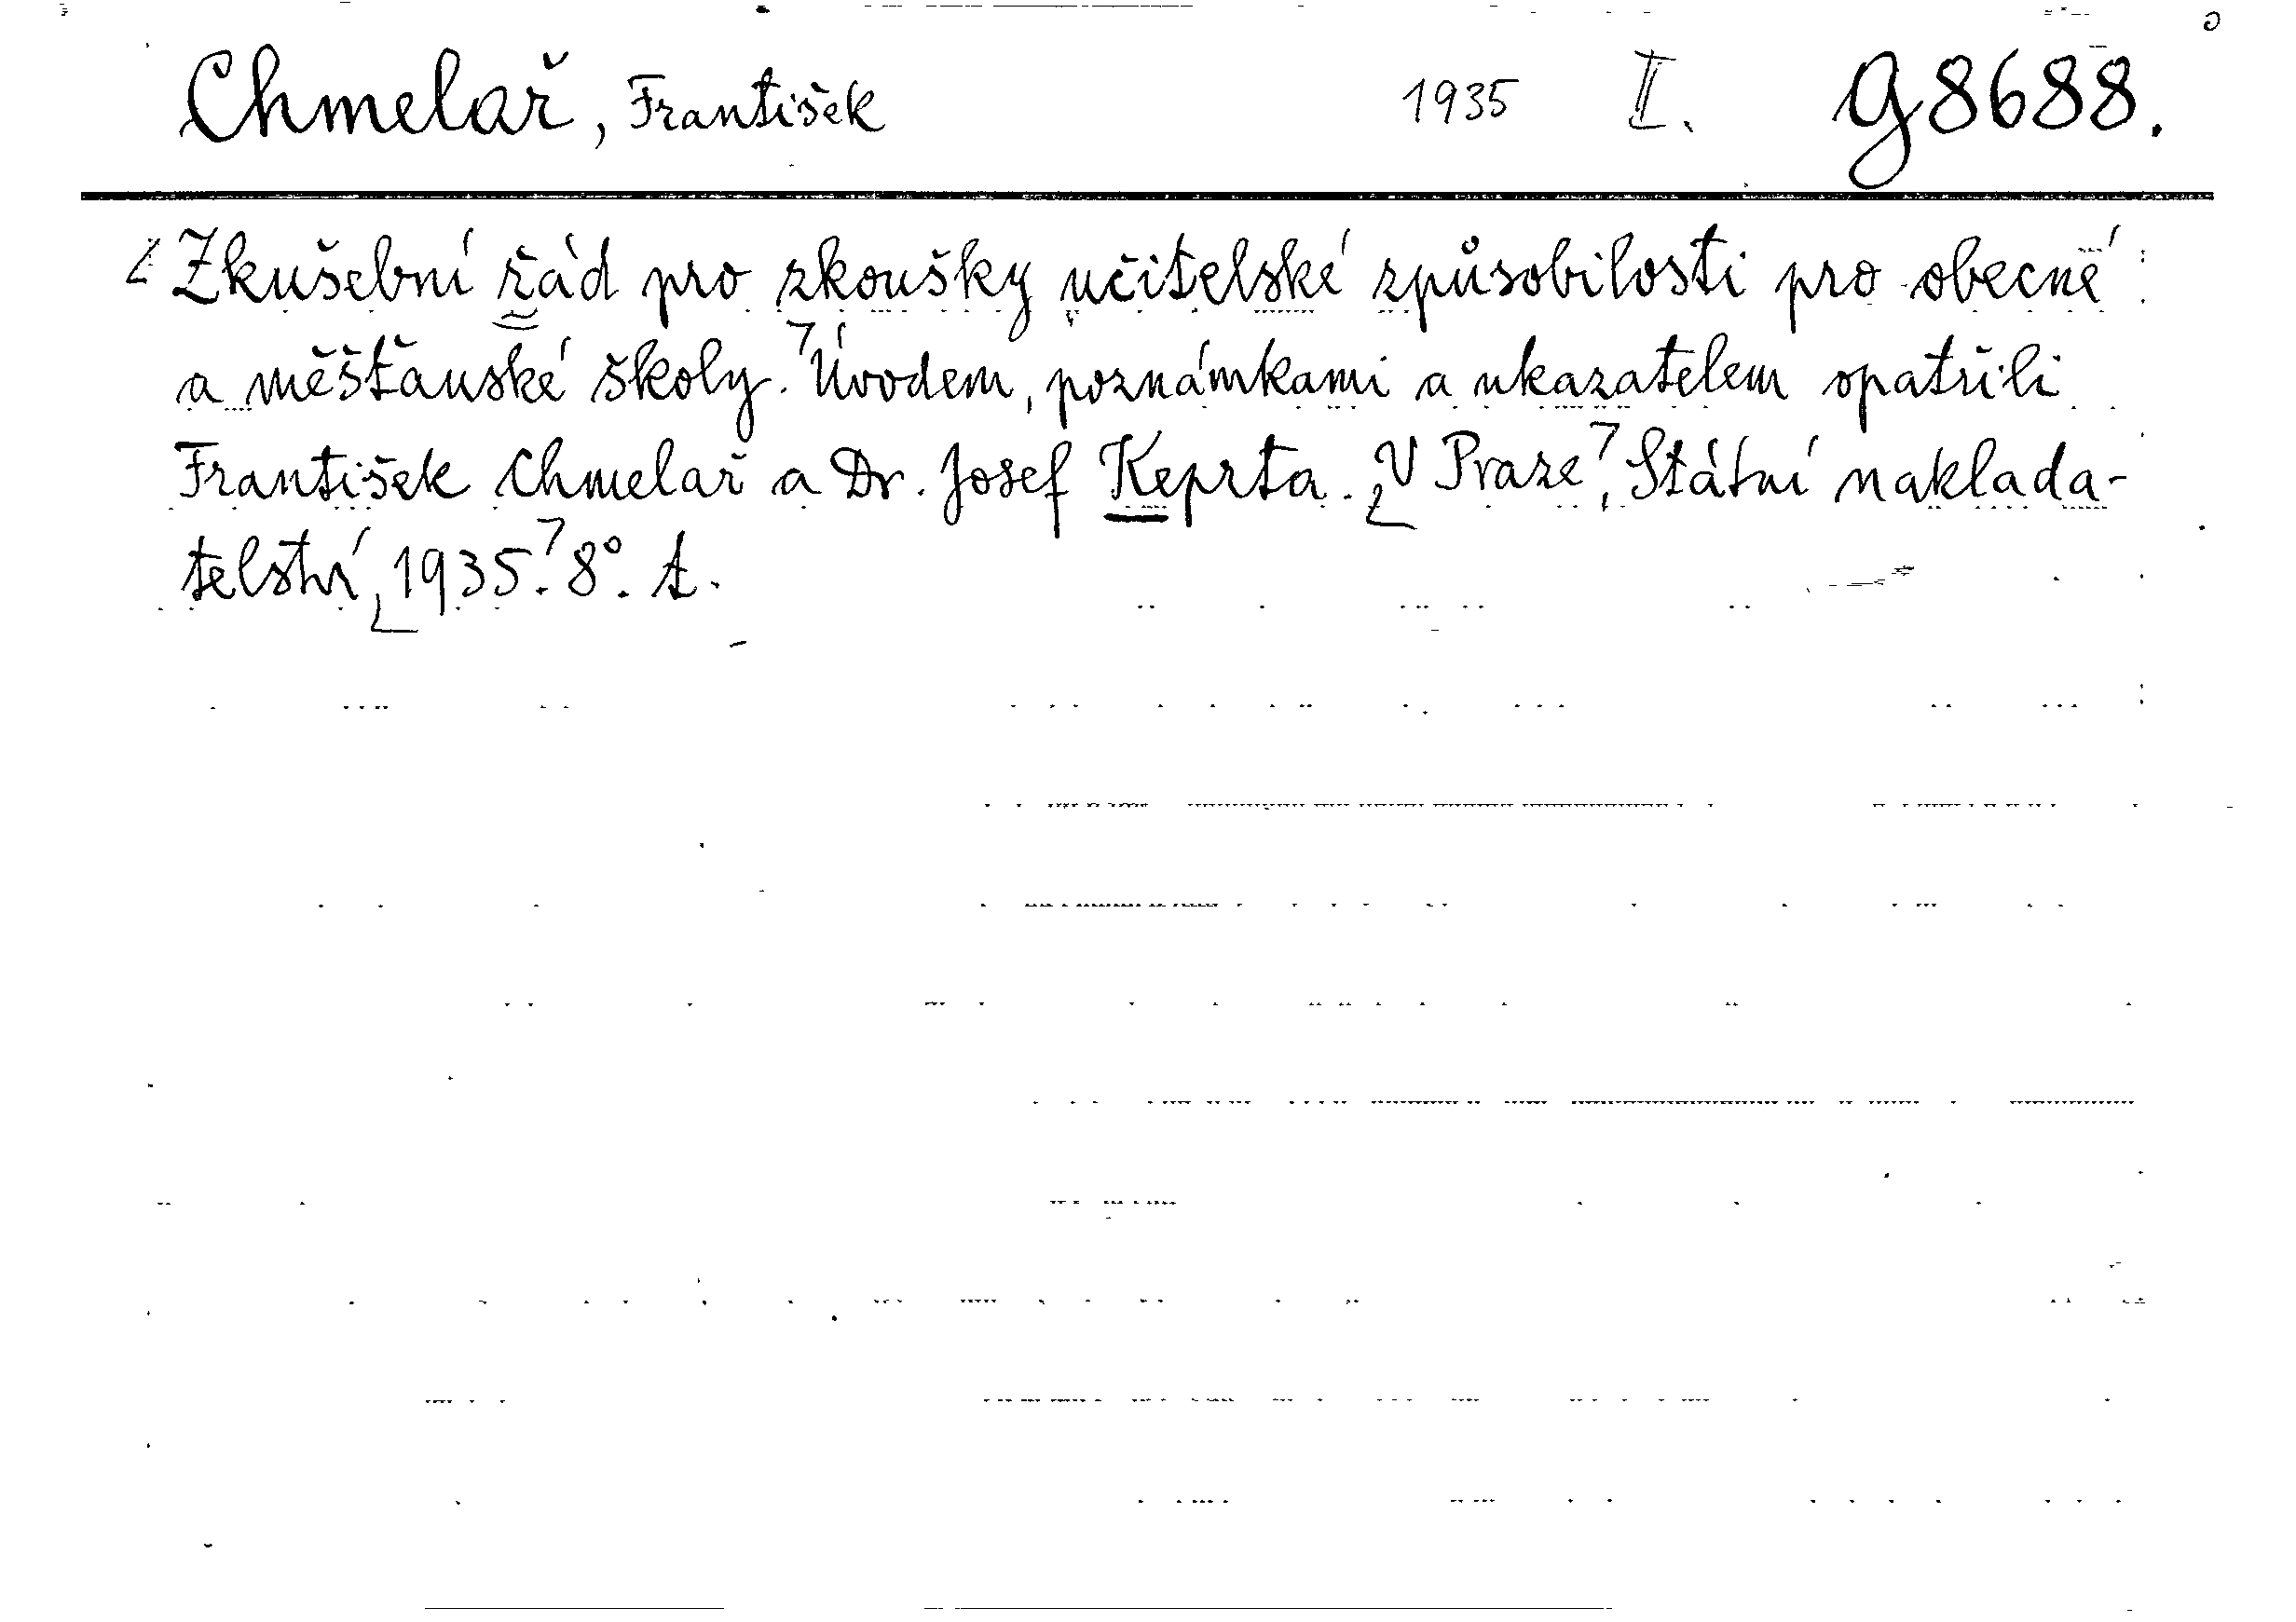 Chmelař, František 1935 I. G8688.
Zkušební řád pro zkoušky učitelské způsobilosti pro obecné
a měšťanské školy. Úvodem, poznámkami a ukazatelem opatřili
František Chmelař a Dr. Josef Keprta. V Praze, Státní naklada-
telství, 1935. 8°. t.